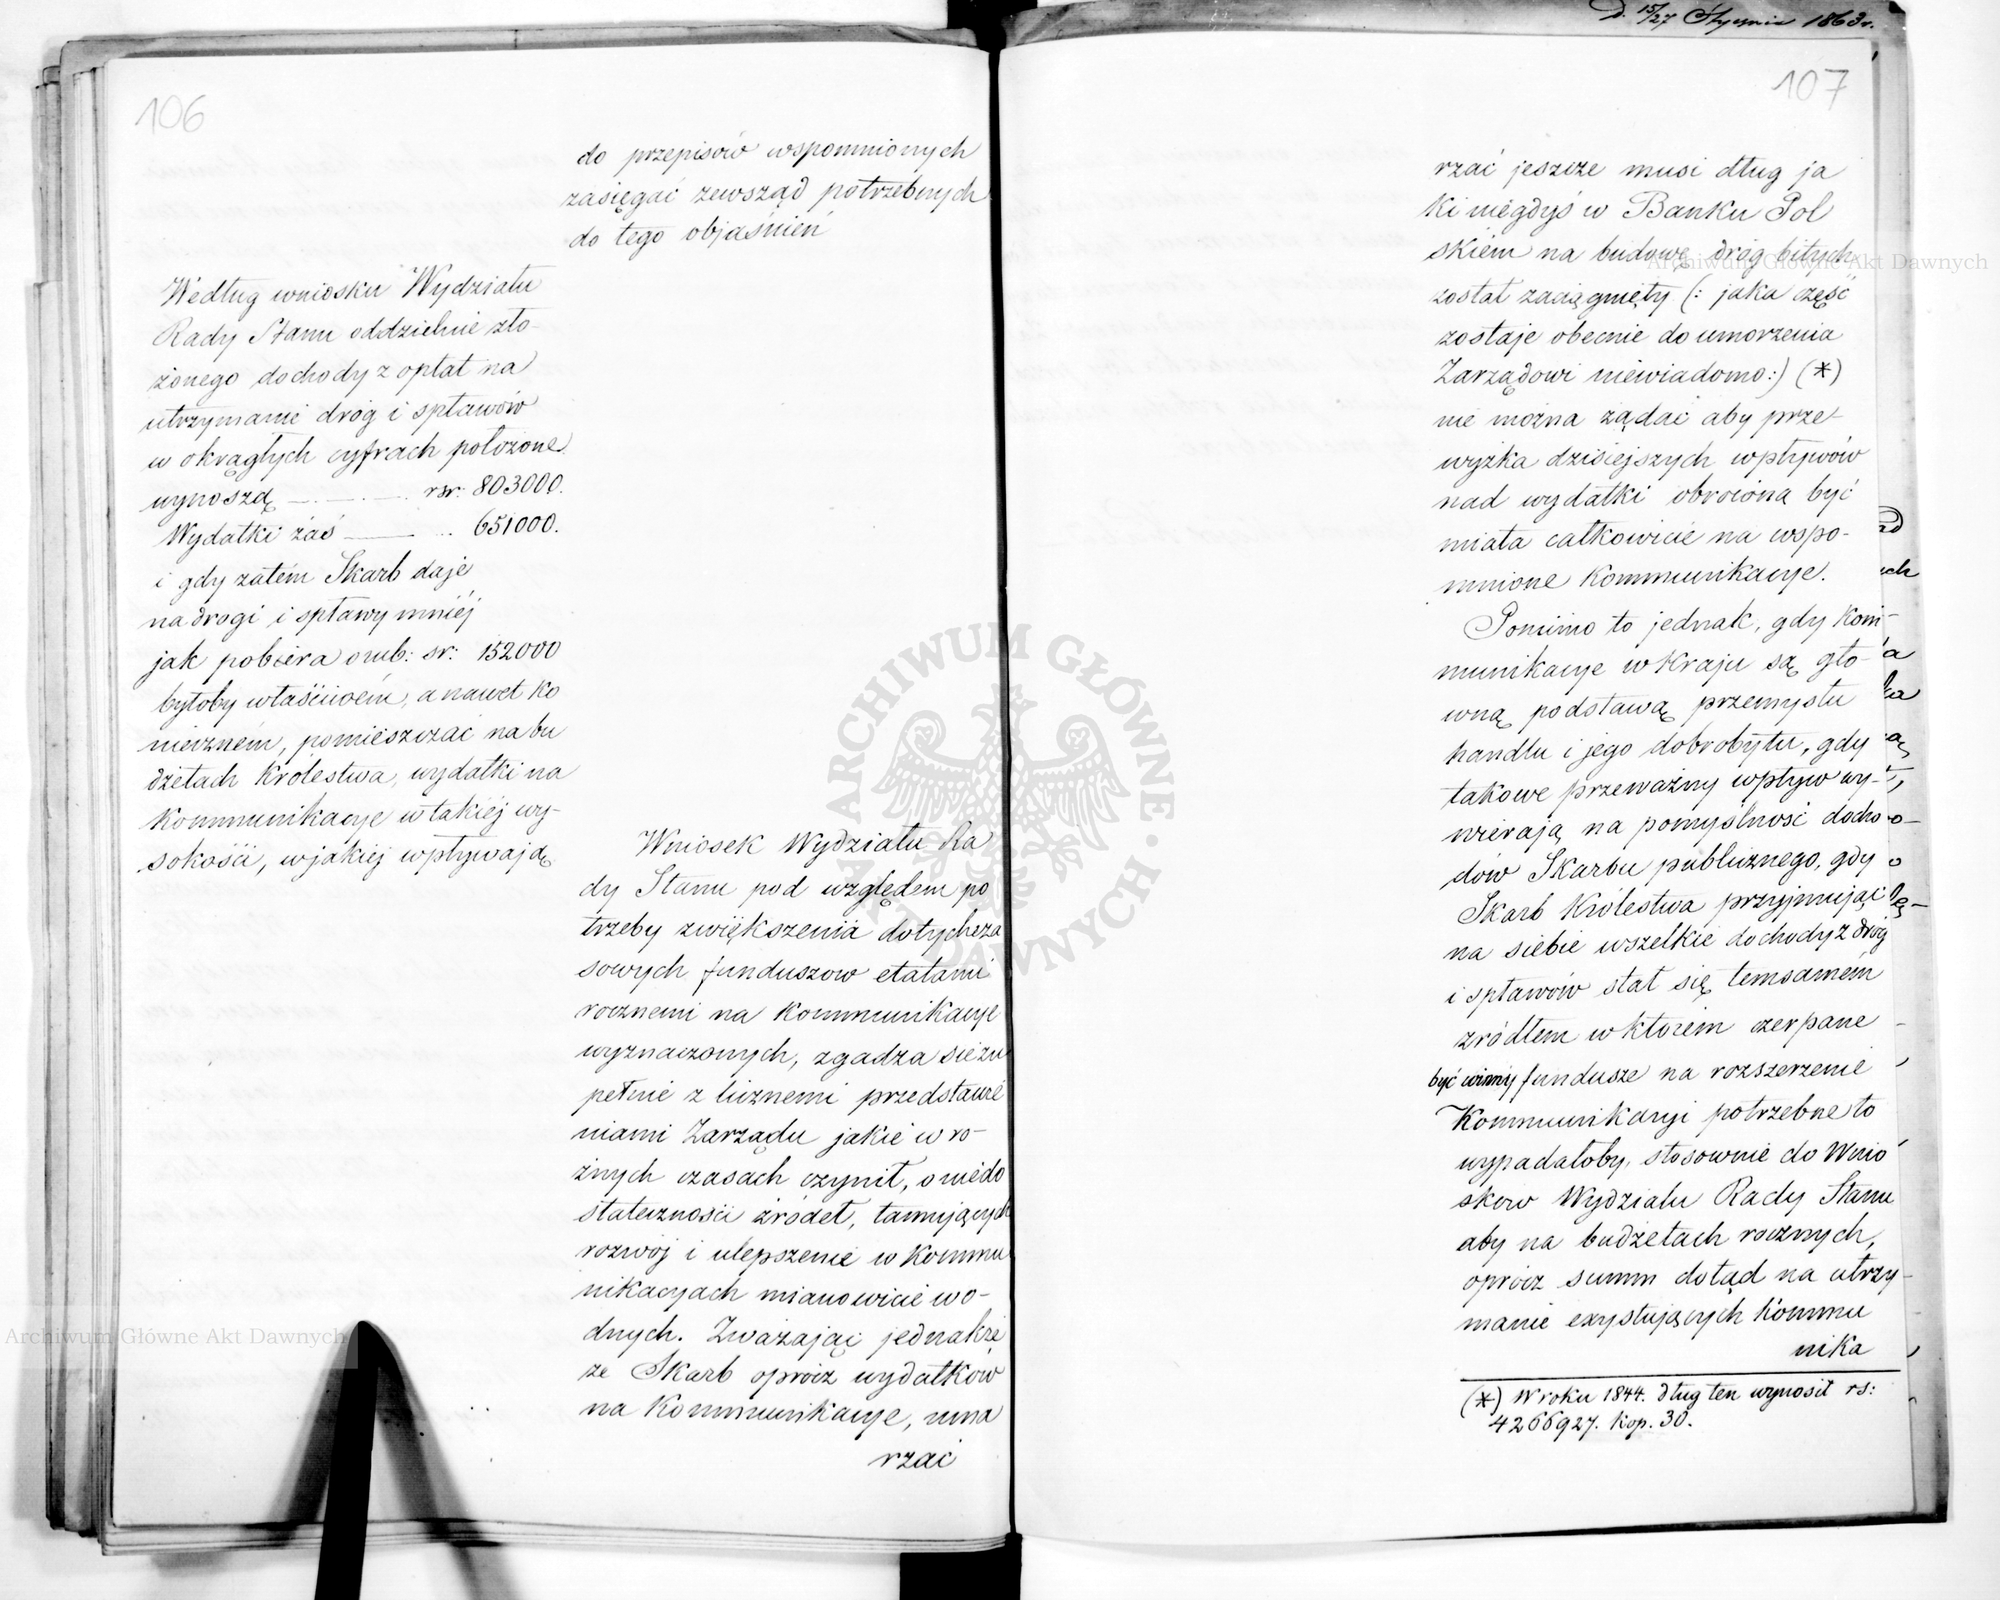 106
do przepisów wspomnionych
zasięgać zewsząd potrzebnych
do tego objaśnień
Według wniosku Wydziału
Rady Stanu oddzielnie zło-
żonego dochody z opłat na
utrzymanie dróg i spławów
w okrągłych cyfrach położone
wynoszą rsr. 803000.
Wydatki zaś 651000.
i gdy zatém Skarb daje
na drogi i spławy mniéj
jak pobiera o rub: sr: 152000
byłoby właściwém, a nawet ko
nieczném, pomieszczać na bu
dżetach Królestwa, wydatki na
Kommunikacye w takiéj wy-
sokości, w jakiej wpływają
Wniosek Wydziału Ra
dy Stanu pod względem po
trzeby zwiększenia dotychcza
sowych funduszow etatami
rocznemi na Kommunikacye
wyznaczonych, zgadza się zu
pełnie z licznemi przedstawie
niami Zarządu jakie w ro-
żnych czasach czynił, o niedo
stateczności źródeł, tamujących
rozwój i ulepszenie w Kommu
nikacyach mianowicie wo-
dnych. Zważając jednakże
że Skarb oprócz wydatków
na Kommunikacye, uma
rzać
D. 15/27 Stycznia 1863 r.
107
rzać jeszcze musi dług ja
ki niegdyś w Banku Pol
skiém na budowę dróg bitych
został zaciągnięty (: jaka część
zostaje obecnie do umorzenia
Zarządowi niewiadomo:) (*)
nie można żądać aby prze-
wyżka dzisiejszych wpływów
nad wydatki obrócona być
miała całkowicie na wspo-
mnione Kommunikacye.
Pomimo to jednak, gdy Kom-
munikacye w Kraju są głó-
wną podstawą przemysłu
handlu i jego dobrobytu, gdy
takowe przeważny wpływ wy-
wierają na pomyślność docho
dów Skarbu publicznego, gdy
Skarb Królestwa przyjmując
na siebie wszelkie dochody z dróg
i spławów stał się temsamém
zródłem w którém czerpane
być winny fundusze na rozszerzenie
Kommunikacyi potrzebne to
wypadałoby, stosownie do Wnio
skow Wydziału Rady Stanu
aby na budżetach rocznych,
oprócz summ dotąd na utrzy-
manie exystujących Kommu
nika
(*) W roku 1844. dług ten wynosił rs:
4266927. kop. 30.
Archiwum Główne Akt Dawnych
Archiwum Główne Akt Dawnych
ARCHIWUM GŁÓWNE AKT DAWNYCH